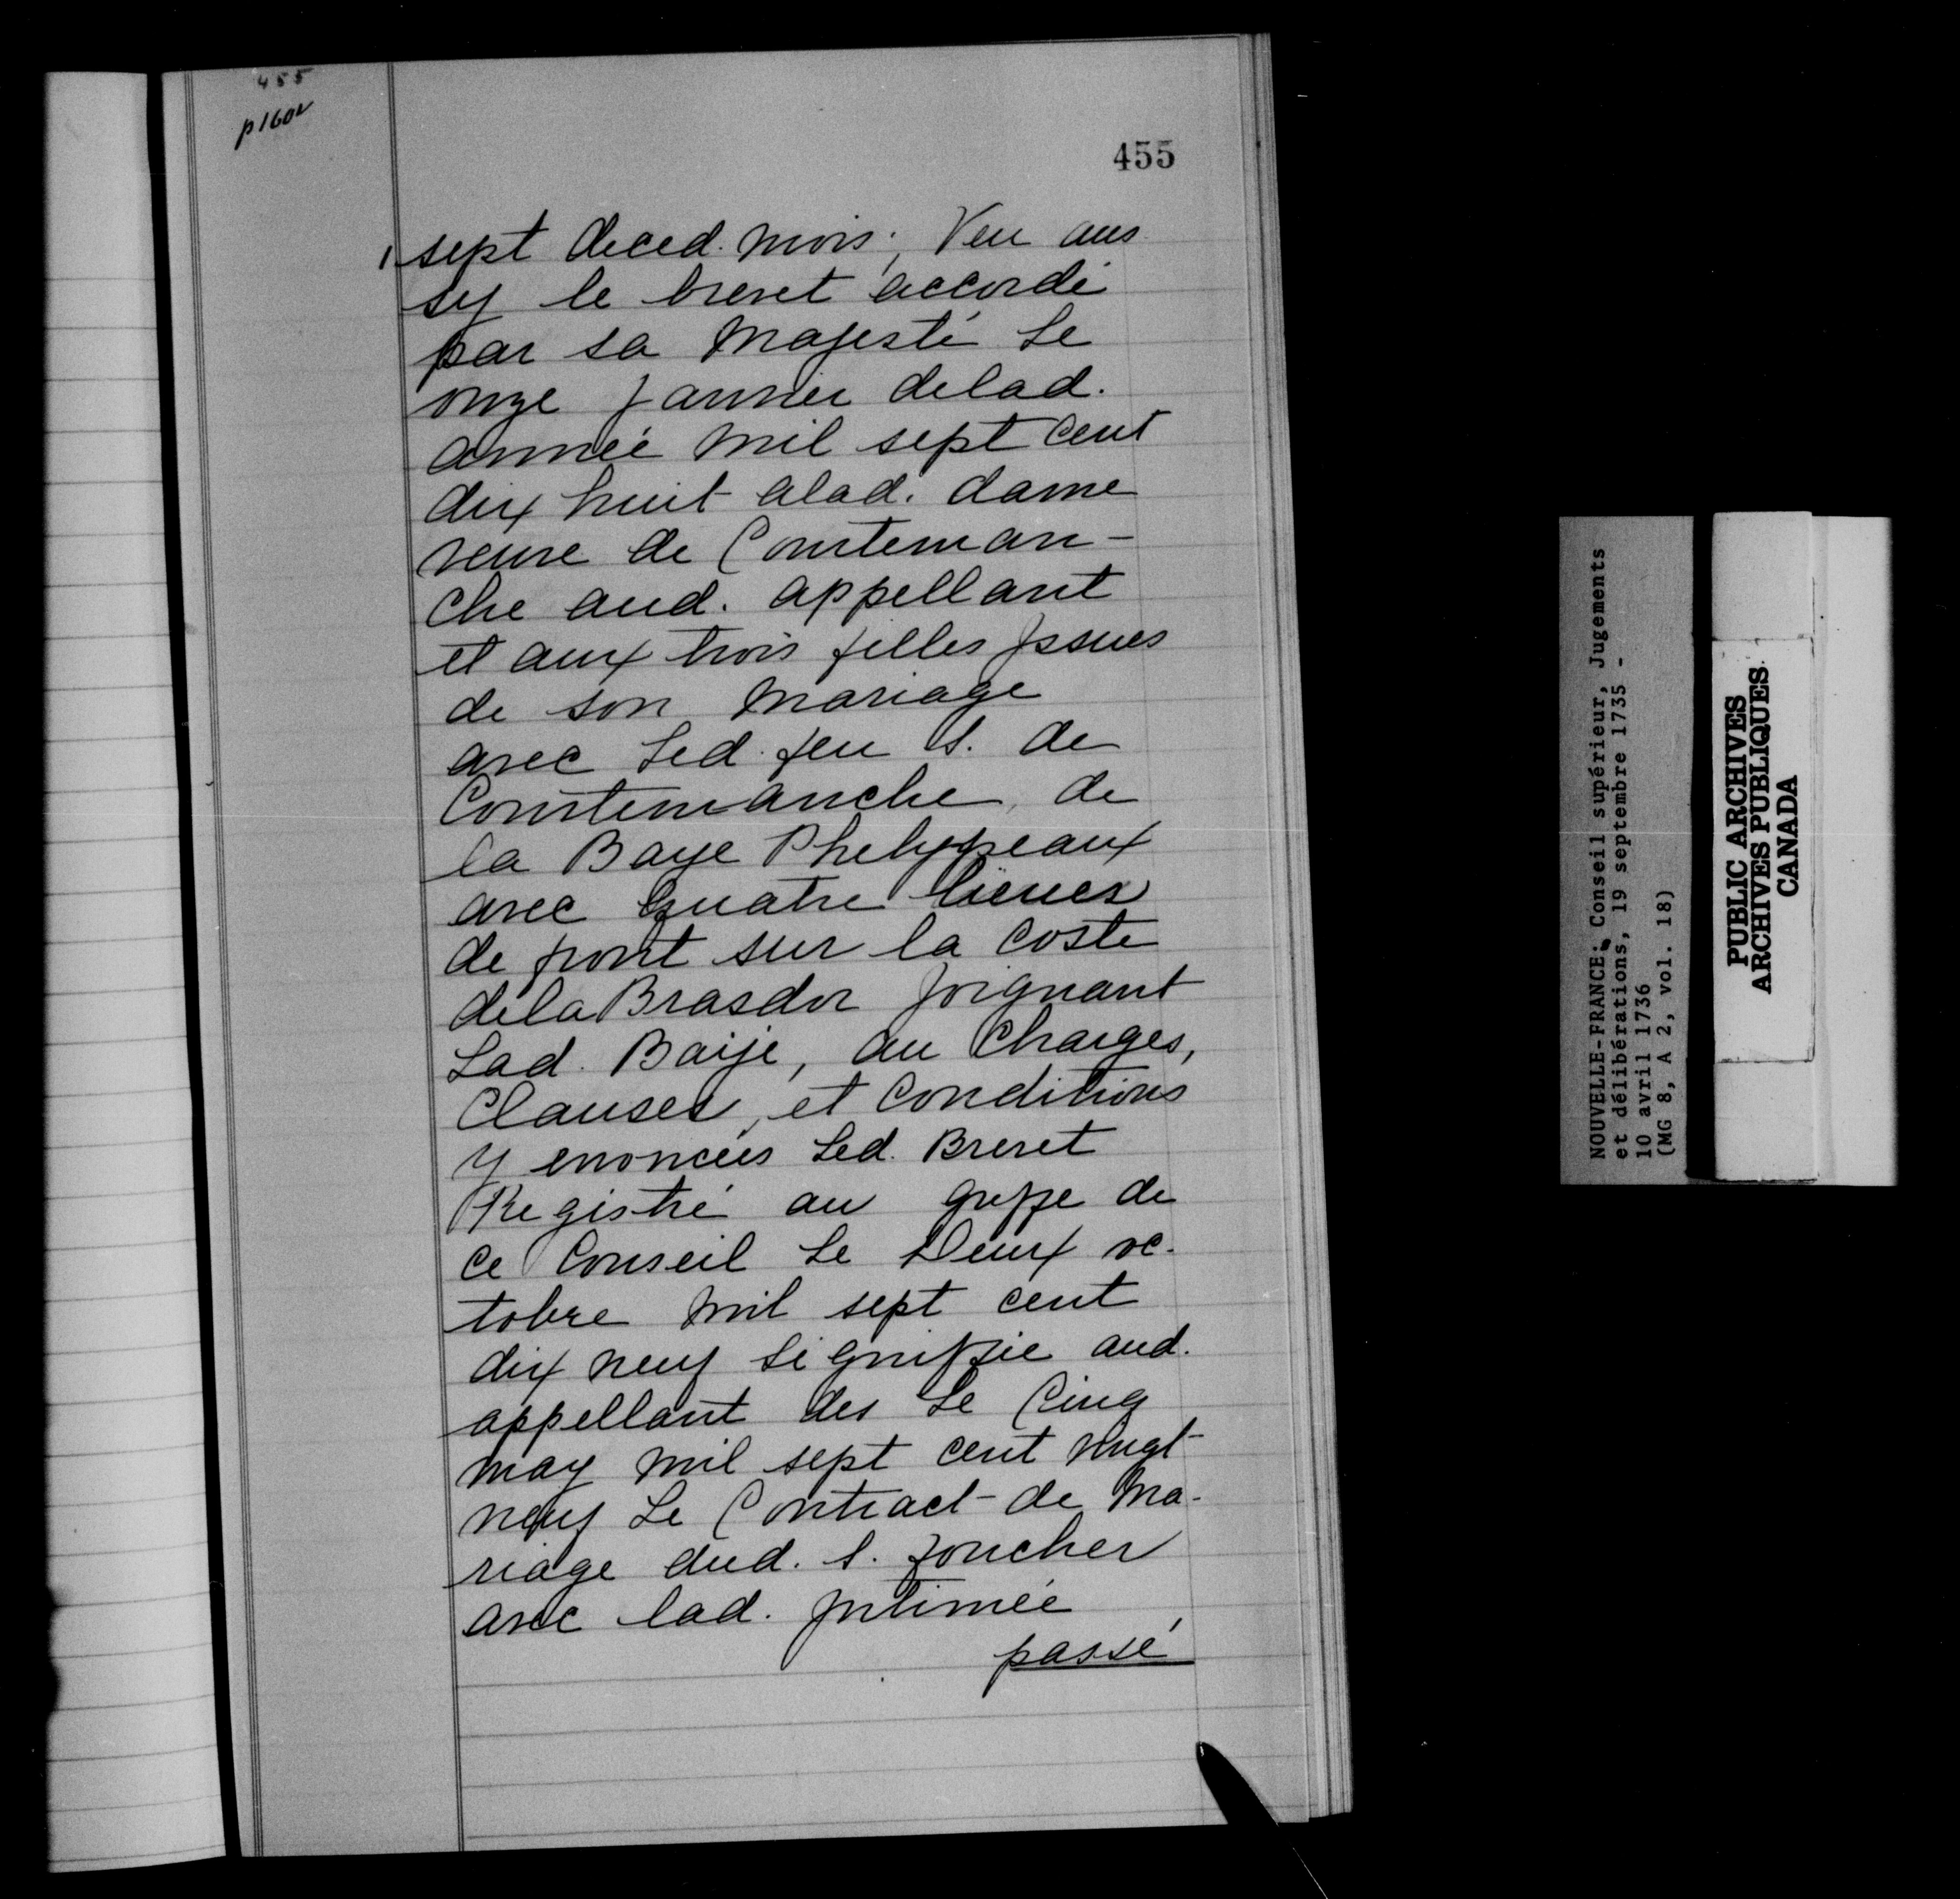 455
p160v
455
sept deced. mois; Veu aus
sy le brevet accordé
par sa Majesté Le
onze Janvier delad.
année mil sept cent
dix huit alad. dame
veuve de Courteman-
che aud. appellant
et aux trois filles Jssues
de son mariage
avec Led. feu S. de
Courtemanche, de
la Baye Phelypeaux
avec quatre lieues
de front sur la coste
dela Brasdor joignant
Lad. Baije, au charges,
Clauses, et Conditions
y enoncées Led. Brevet
Registré au greffe de
ce Conseil Le Deux oc-
tobre mil sept cent
dix neuf signiffié aud.
appellant des Le Cinq
may mil sept cent vingt
neuf Le Contract de Ma-
riage dud. S. foucher
avec lad. Jntimée
passé
NOUVELLE-FRANCE: Conseil supérieur, Jugements
et délibérations, 19 septembre 1735 -
10 avril 1736
(MG 8, A 2, vol. 18)
PUBLIC ARCHIVES
ARCHIVES PUBLIQUES
CANADA